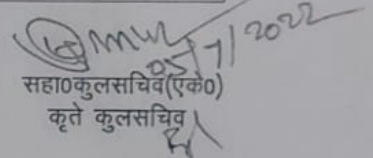 05/7/2022
सहा०कुलसचिव(एके०)
कृते कुलसचिव